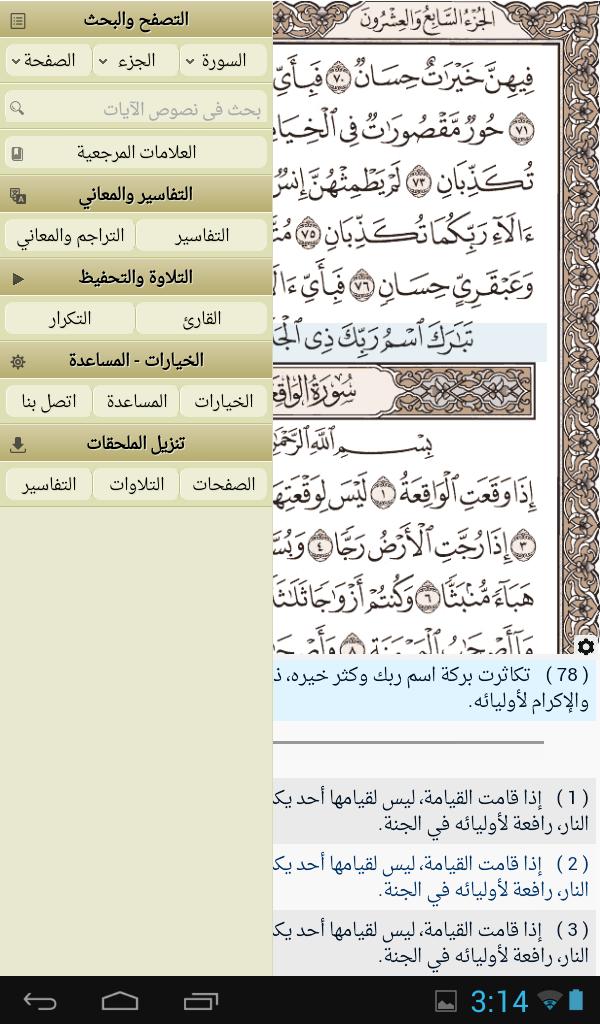 التصفح والبحث
السورة
الجزء
الصفحة
بحث فى نصوص الآيات
العلامات المرجعية
التفاسير والمعاني
التفاسير
التراجم والمعاني
التلاوة والتحفيظ
القارئ
التكرار
الخيارات - المساعدة
الخيارات
المساعدة
اتصل بنا
تنزيل الملحقات
الصفحات
التلاوات
التفاسير
الجزء السابع والعشرون
فِيهِنَّ خَيْرَٰتٌ حِسَانٌ ٧٠ فَبِأَيِّ
٧١ حُورٌ مَّقْصُورَٰتٌ فِي ٱلْخِيَا
تُكَذِّبَانِ ٧٣ لَمْ يَطْمِثْهُنَّ إِنسٌ
ءَالَآءِ رَبِّكُمَا تُكَذِّبَانِ ٧٥
وَعَبْقَرِيٍّ حِسَانٍ ٧٦ فَبِأَيِّ ءَالَا
تَبَٰرَكَ ٱسْمُ رَبِّكَ ذِي ٱلْجَ
سُورَةُ الوَاقِعَ
بِسْمِ ٱللَّهِ ٱلرَّحْمَٰ
إِذَا وَقَعَتِ ٱلْوَاقِعَةُ ١ لَيْسَ لِوَقْعَتِهَا
٣ إِذَا رُجَّتِ ٱلْأَرْضُ رَجًّا ٤ وَبُسَّ
هَبَآءً مُّنۢبَثًّا ٦ وَكُنتُمْ أَزْوَٰجًا ثَلَٰثَ
( 78 ) تكاثرت بركة اسم ربك وكثر خيره، ذ
والإكرام لأوليائه.
( 1 ) إذا قامت القيامة، ليس لقيامها أحد يك
النار، رافعة لأوليائه في الجنة.
( 2 ) إذا قامت القيامة، ليس لقيامها أحد يك
النار، رافعة لأوليائه في الجنة.
( 3 ) إذا قامت القيامة، ليس لقيامها أحد يك
النار، رافعة لأوليائه في الجنة.
3:14